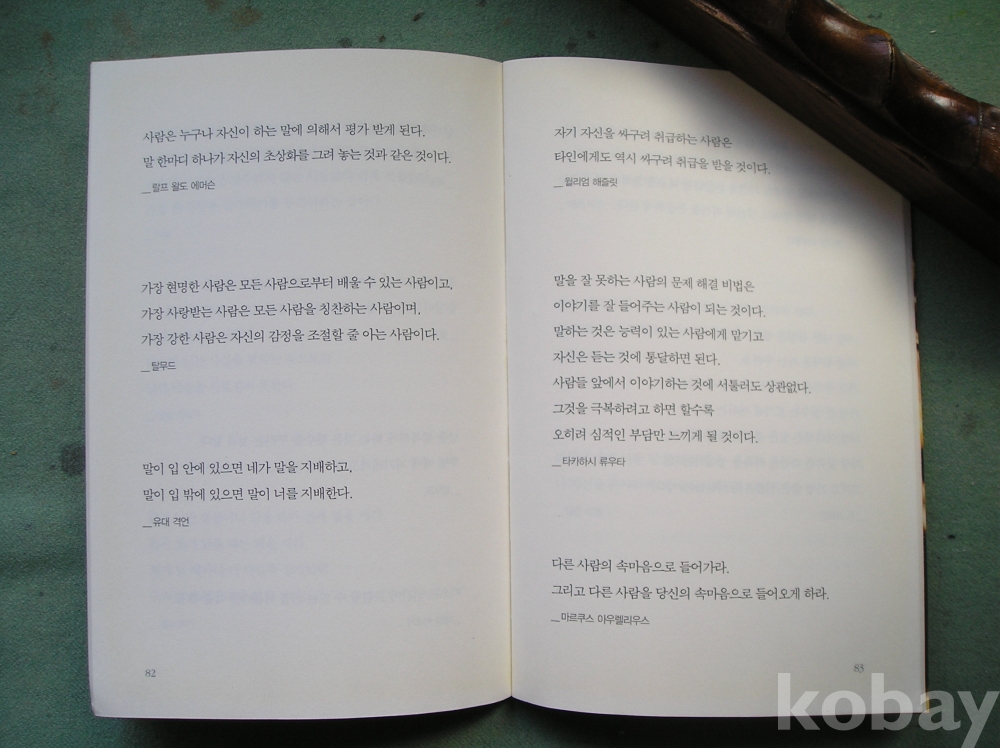 사람은 누구나 자신이 하는 말에 의해서 평가 받게 된다.
말 한마디 하나가 자신의 초상화를 그려 놓는 것과 같은 것이다.
_랄프 왈도 에머슨
가장 현명한 사람은 모든 사람으로부터 배울 수 있는 사람이고,
가장 사랑받는 사람은 모든 사람을 칭찬하는 사람이며,
가장 강한 사람은 자신의 감정을 조절할 줄 아는 사람이다.
_탈무드
말이 입 안에 있으면 네가 말을 지배하고,
말이 입 밖에 있으면 말이 너를 지배한다.
_유대 격언
82
자기 자신을 싸구려 취급하는 사람은
타인에게도 역시 싸구려 취급을 받을 것이다.
_윌리엄 해즐릿
말을 잘 못하는 사람의 문제 해결 비법은
이야기를 잘 들어주는 사람이 되는 것이다.
말하는 것은 능력이 있는 사람에게 맡기고
자신은 듣는 것에 통달하면 된다.
사람들 앞에서 이야기하는 것에 서툴러도 상관없다.
그것을 극복하려고 하면 할수록
오히려 심적인 부담만 느끼게 될 것이다.
_타카하시 류우타
다른 사람의 속마음으로 들어가라.
그리고 다른 사람을 당신의 속마음으로 들어오게 하라.
_마르쿠스 아우렐리우스
83
kobay